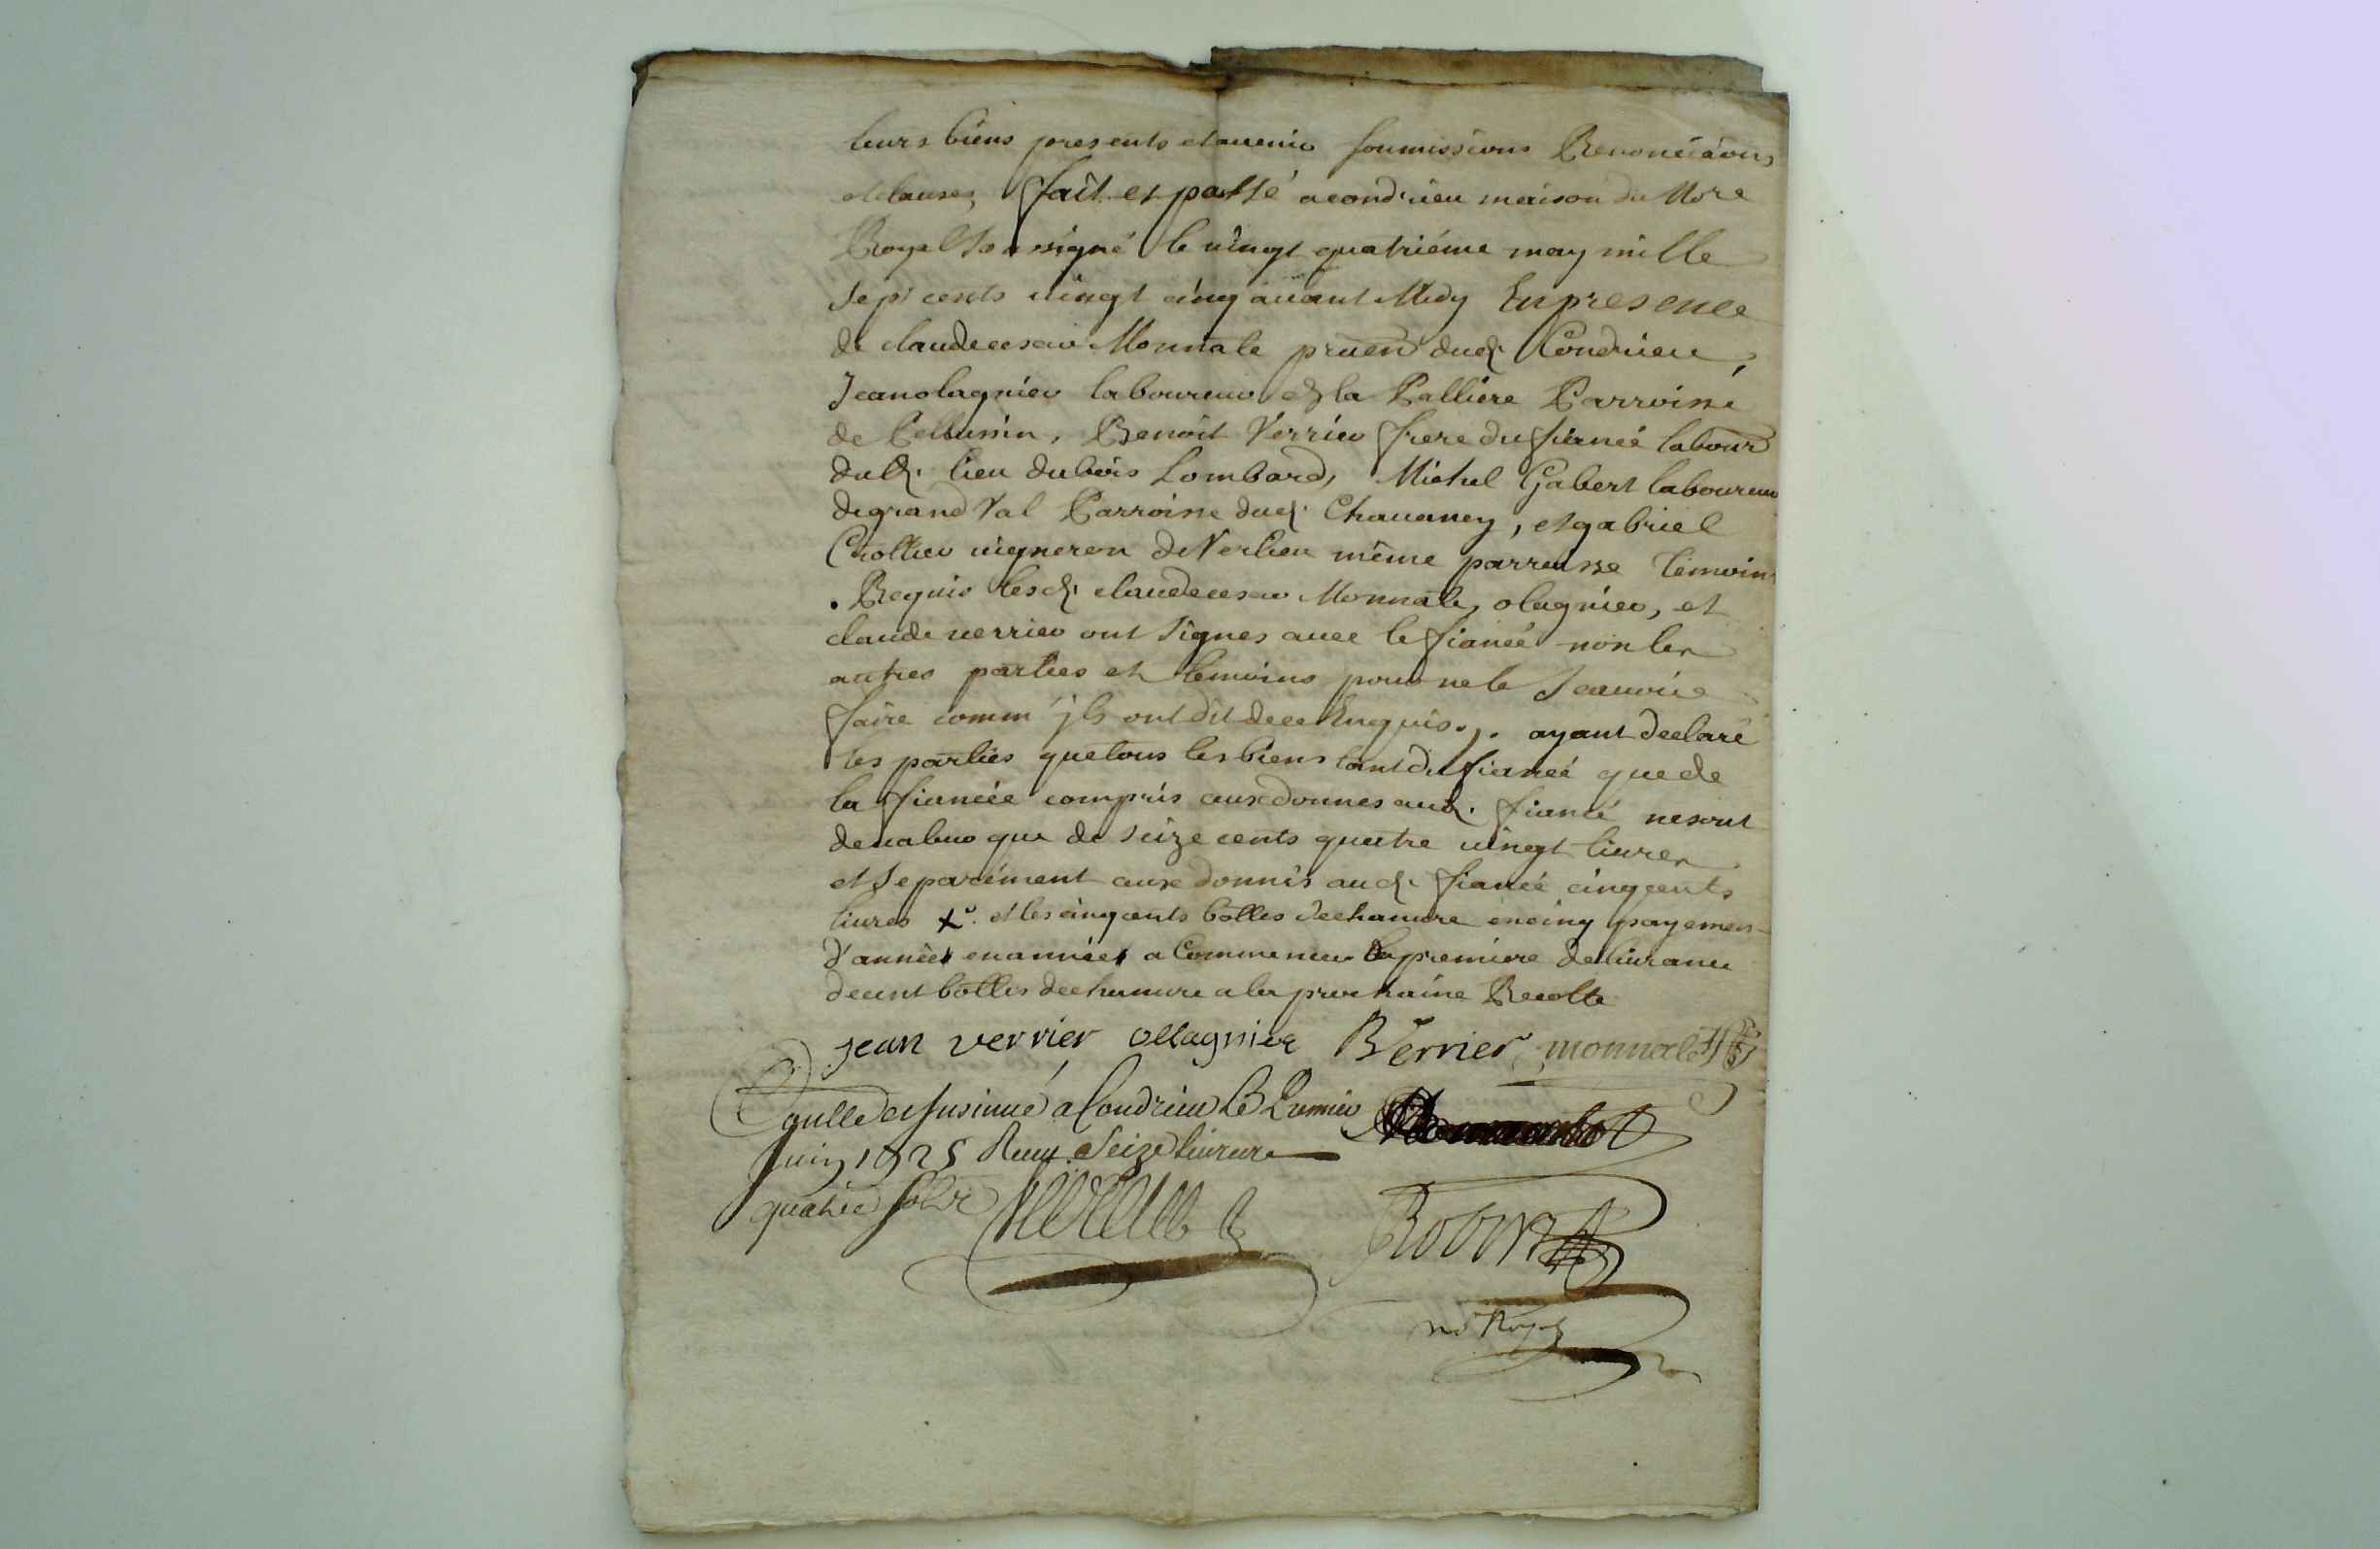 leurs biens presents et auenir soumissions Renonciaõns
et clauses, ffait et passé a condrieu maison du Nore
Royal Soussigné le uingt quatriéme may mille
Sept cents uingt cinq auant Midy En presence
de claude cesar Monnate pruen dud. Condrieu,
Jean olagnier laboureur de la Valliere Parroisse
de Pellussin, Benoit Verrier frere du fiancé labour
dud. lieu du bois Lombard, Michel Gabert laboureur
de grand Val Parroisse dud. Chauaney, et gabriel
Crollier uigneron de Verlieu même parroisse temoins
. Requis lesd. claude cesar Monnate, olagnier, et
claude uerrier ont Signes auec le fiancé non les
autres parties et temoins pour ne le Scauoir
faire comm' jls ont dit de ce Enquis ./. ayant declaré
les parties que tous les biens tant du fiancé que de
la fiancée compris ceux donnes aud. fiancé ne sont
de ualeur que de seize cents quatre uingt liures
et Separément ceux donnés aud. fiancé cinq cents
liures X et les cinq cents bottes de chanure en cinq payemens
d'année en année a Commencer la premiere deliurance
de cent bottes de chanure a la prochaine Recolte
jean verrier ollagnier B Verrier monnate
Coullé et Insinué a Condrieu le Premier
Juin 1725 Reçu Seize liures
quatre sols
Robin
no Royal